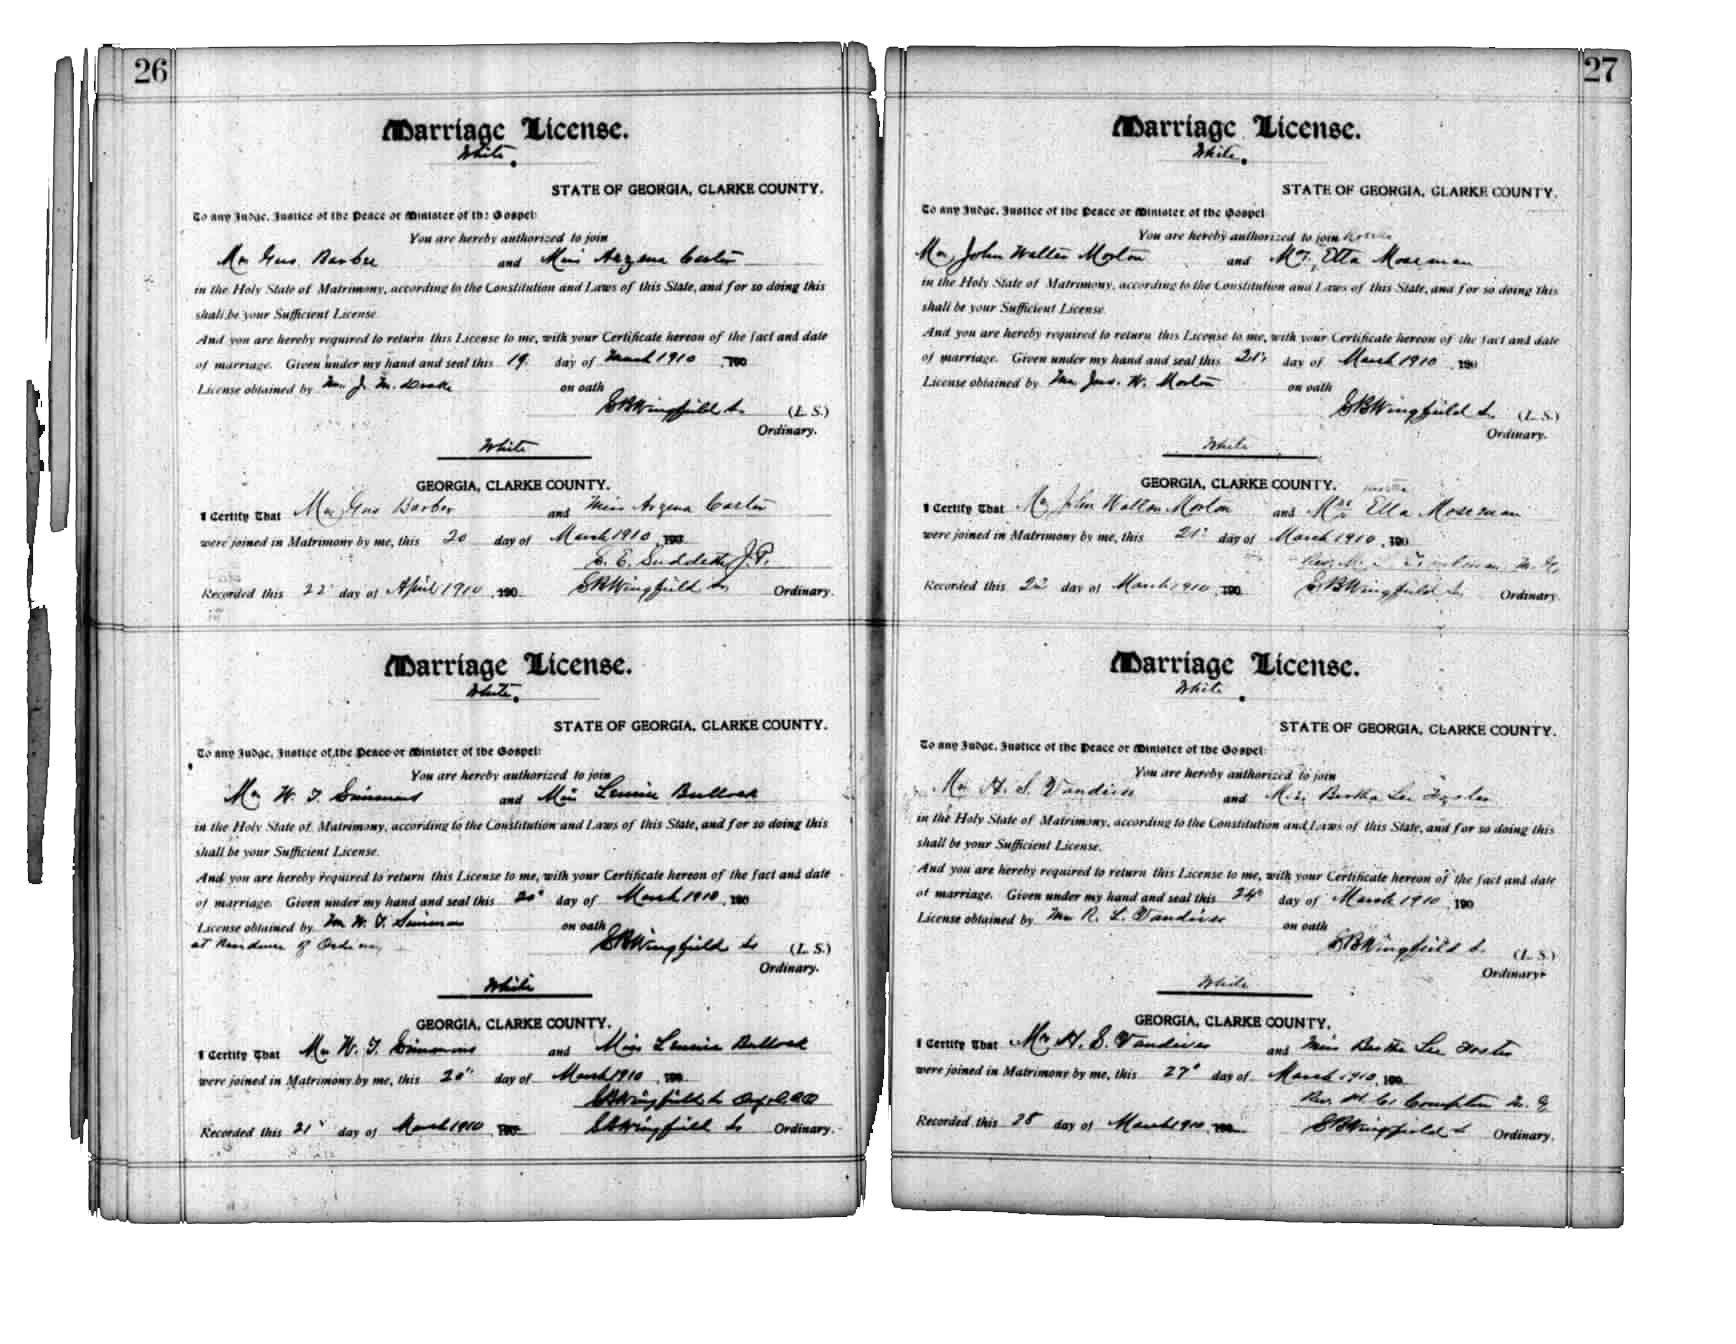 26
Marriage License.
White
STATE OF GEORGIA, CLARKE COUNTY.
To any Judge, Justice of the Peace or Minister of the Gospel:
You are hereby authorized to join
Mr Gus Barber and Miss Arzena Carter
in the Holy State of Matrimony, according to the Constitution and Laws of this State, and for so doing this
shall be your Sufficient License.
And you are hereby required to return this License to me, with your Certificate hereon of the fact and date
of marriage. Given under my hand and seal this 19 day of March 1910, 190
License obtained by Mr J. M. Drake on oath
SBWingfield (L. S.)
Ordinary.
White
GEORGIA, CLARKE COUNTY.
I Certify That Mr Gus Barber and Miss Arzena Carter
were joined in Matrimony by me, this 20 day of March 1910, 190
E. E. Suddeth J.P.
Recorded this 22 day of April 1910, 190 SBWingfield Ordinary.
Marriage License.
White
STATE OF GEORGIA, CLARKE COUNTY.
To any Judge, Justice of the Peace or Minister of the Gospel:
You are hereby authorized to join
Mr W. T. Simmons and Miss Bullock
in the Holy State of Matrimony, according to the Constitution and Laws of this State, and for so doing this
shall be your Sufficient License.
And you are hereby required to return this License to me, with your Certificate hereon of the fact and date
of marriage. Given under my hand and seal this 20" day of March 1910, 190
License obtained by Mr W. T. Simmons on oath
at Residence of Ordinary
SBWingfield (L. S.)
Ordinary.
White
GEORGIA, CLARKE COUNTY.
I Certify That Mr W. T. Simmons and Miss Bullock
were joined in Matrimony by me, this 20" day of March 1910, 190
SBWingfield
Recorded this 21 day of March 1910, 190 SBWingfield Ordinary.
27
Marriage License.
White
STATE OF GEORGIA, CLARKE COUNTY.
To any Judge, Justice of the Peace or Minister of the Gospel:
You are hereby authorized to join
Mr John Walter Morton and Mrs Etta Moseman
in the Holy State of Matrimony, according to the Constitution and Laws of this State, and for so doing this
shall be your Sufficient License.
And you are hereby required to return this License to me, with your Certificate hereon of the fact and date
of marriage. Given under my hand and seal this 21" day of March 1910, 190
License obtained by Mr Jno. W. Morton on oath
SBWingfield (L. S.)
Ordinary.
White
GEORGIA, CLARKE COUNTY.
I Certify That Mr John Walton Morton and Mrs Etta Moseman
were joined in Matrimony by me, this 21" day of March 1910, 190
Rev. M. G.
Recorded this 22 day of March 1910, 190 SBWingfield Ordinary.
Marriage License.
White
STATE OF GEORGIA, CLARKE COUNTY.
To any Judge, Justice of the Peace or Minister of the Gospel:
You are hereby authorized to join
Mr H. S. Vandiver and Miss Bertha Lee Foster
in the Holy State of Matrimony, according to the Constitution and Laws of this State, and for so doing this
shall be your Sufficient License.
And you are hereby required to return this License to me, with your Certificate hereon of the fact and date
of marriage. Given under my hand and seal this 24" day of March 1910, 190
License obtained by Mr R. L. Vandiver on oath
SBWingfield (L. S.)
Ordinary
White
GEORGIA, CLARKE COUNTY.
I Certify That Mr H. S. Vandiver and Miss Bertha Lee Foster
were joined in Matrimony by me, this 27" day of March 1910, 190
Rev. Compton M. G
Recorded this 28 day of March 1910, 190 SBWingfield Ordinary.